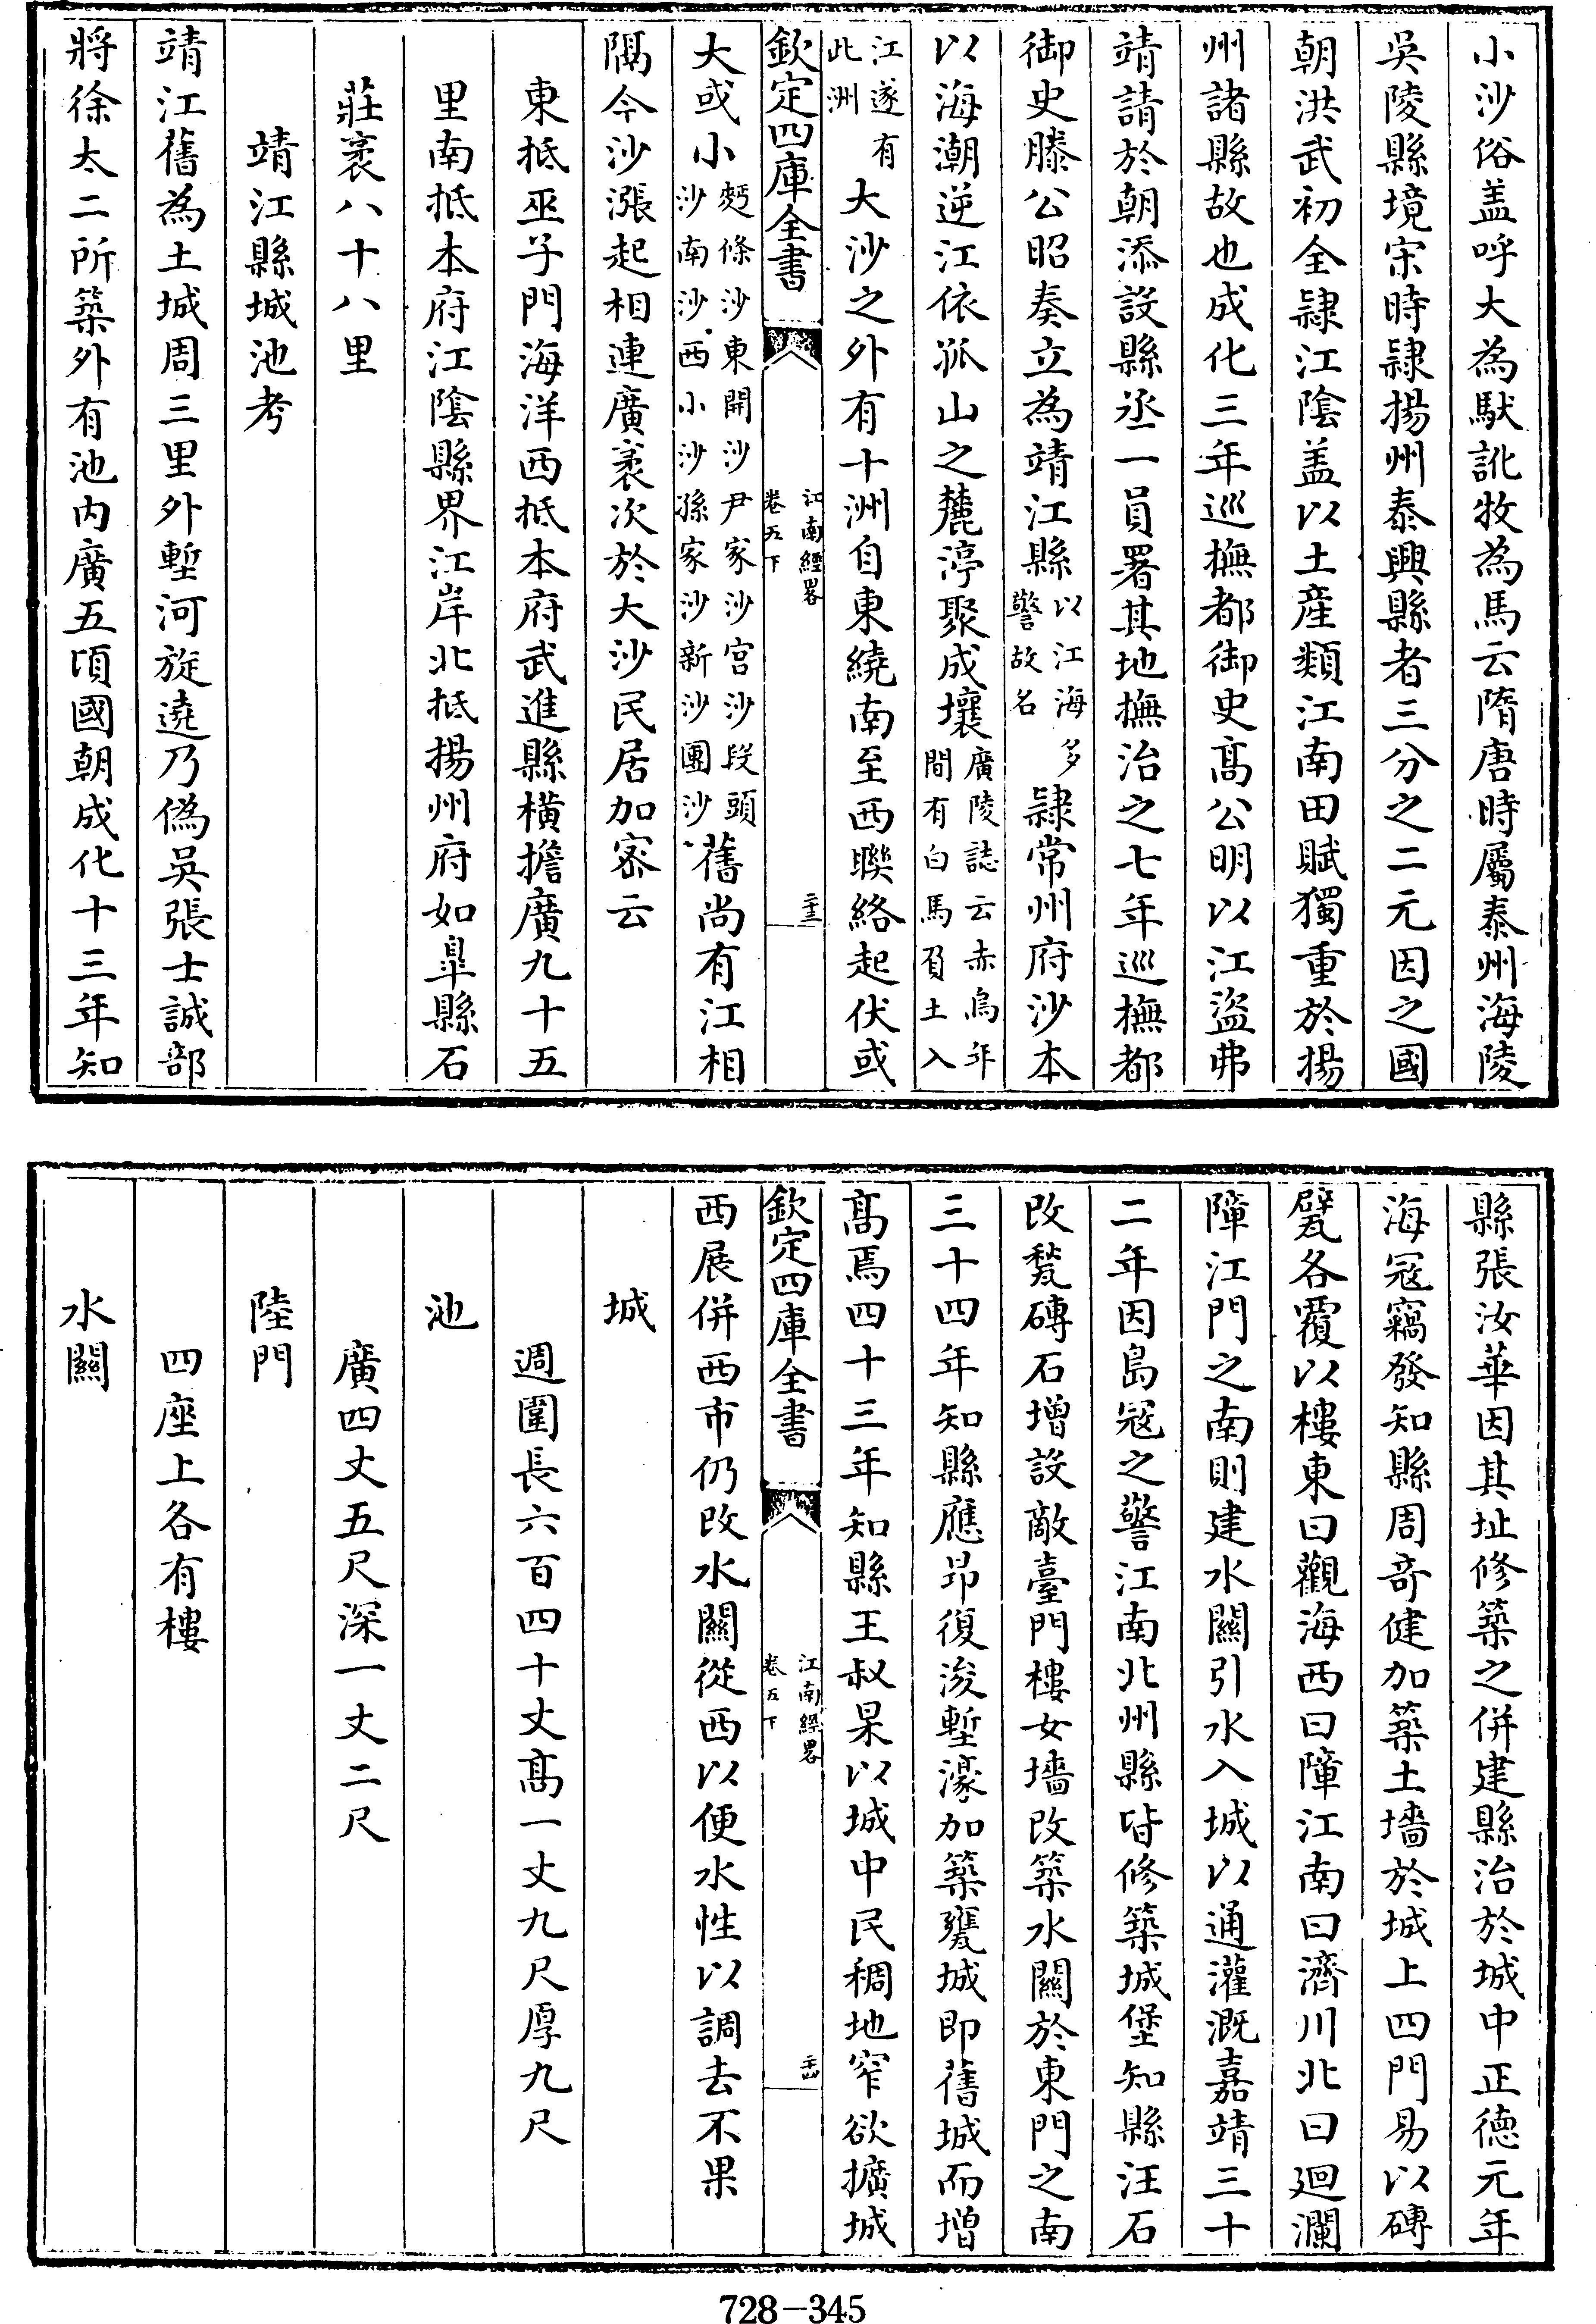 小沙俗盖呼大為馱訛牧為馬云隋唐時屬泰州海陵
吳陵縣境宋時隸揚州泰興縣者三分之二元因之國
朝洪武初全隸江隂盖以土産類江南田賦獨重於揚
州諸縣故也成化三年巡撫都御史髙公明以江盜弗
靖請於朝添設縣丞一員署其地撫治之七年巡撫都
御史滕公昭奏立為靖江縣以江海多警故名隸常州府沙本
以海潮逆江依孤山之麓渟聚成壤廣陵誌云赤烏年間有白馬負土入
江遂有此洲大沙之外有十洲自東繞南至西聨絡起伏或
欽定四庫全書
江南經畧
卷五下
三十三
大或小麫條沙東開沙尹家沙宫沙段頭沙南沙西小沙孫家沙新沙團沙舊尚有江相
隔今沙漲起相連廣袤次於大沙民居加宻云
東抵巫子門海洋西抵本府武進縣橫擔廣九十五
里南抵本府江隂縣界江岸北抵揚州府如臯縣石
莊袤八十八里
靖江縣城池考
靖江舊為土城周三里外塹河旋遶乃偽吳張士誠部
將徐太二所築外有池内廣五頃國朝成化十三年知
縣張汝華因其址修築之併建縣治於城中正德元年
海冦竊發知縣周竒健加築土墻於城上四門易以磚
甓各覆以樓東曰觀海西曰障江南曰濟川北曰廻瀾
障江門之南則建水關引水入城以通灌溉嘉靖三十
二年因島冦之警江南北州縣皆修築城堡知縣汪石
改甃磚石增設敵臺門樓女墻改築水關於東門之南
三十四年知縣應昻復浚塹濠加築甕城即舊城而增
髙焉四十三年知縣王叔杲以城中民稠地窄欲擴城
欽定四庫全書
江南經畧
卷五下
三十四
西展併西市仍改水關從西以便水性以調去不果
城
週圍長六百四十丈髙一丈九尺厚九尺
池
廣四丈五尺深一丈二尺
陸門
四座上各有樓
水關
728-345